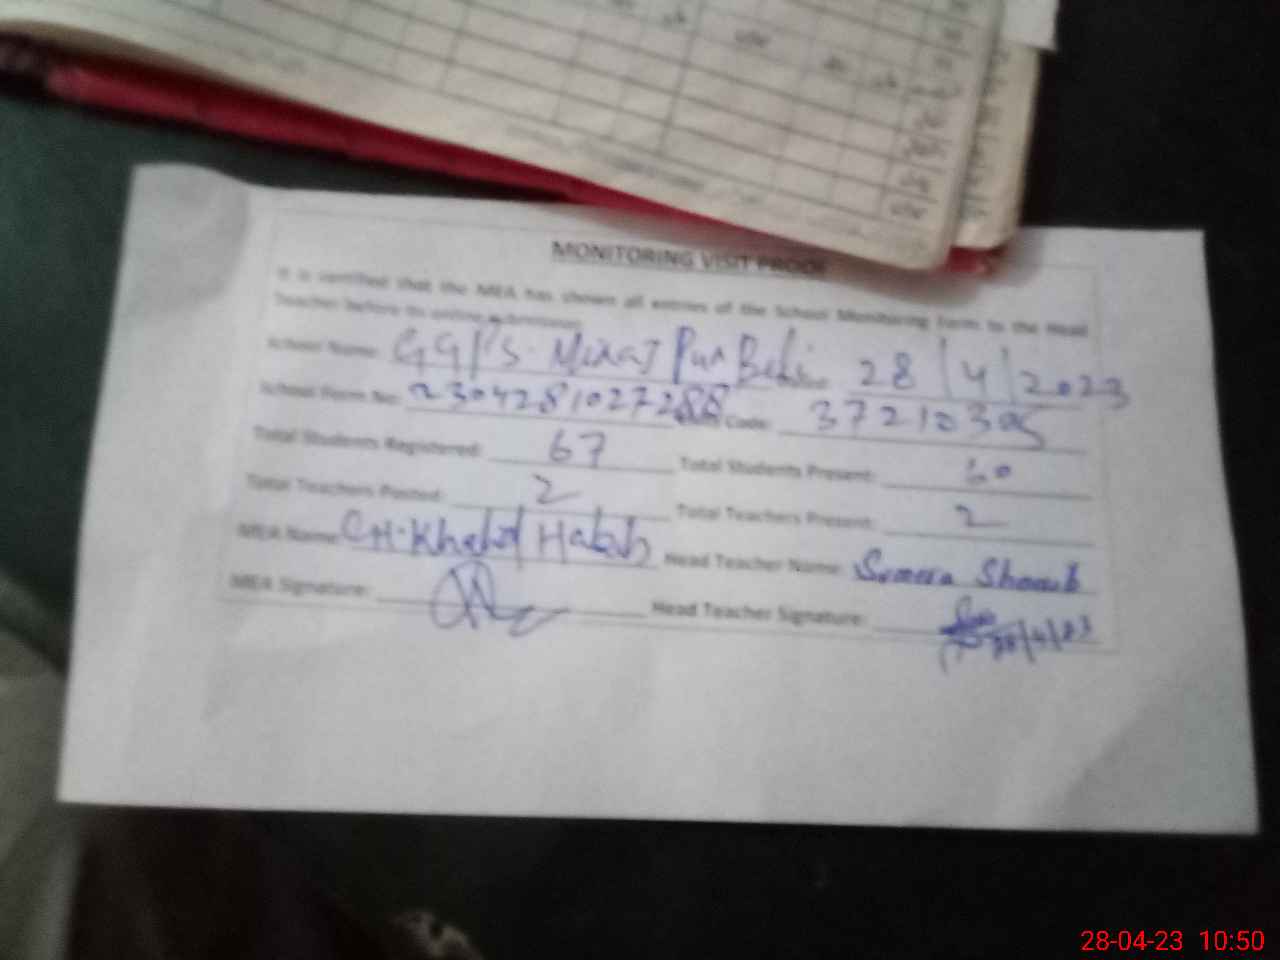 MONITORING VISIT PROOF
It is certified that the MEA has shown all entries of the School Monitoring Form to the Head
Teacher before its online submission.
School Name: GGPS. Miraj Pur Date: 28/4/2023
School Form No: 2304281027288 Code: 37210305
Total Students Registered: 67 Total Students Present: 60
Total Teachers Posted: 2 Total Teachers Present: 2
MEA Name: CH. Khalid Habib Head Teacher Name: Sumera Shoaib
MEA Signature: Head Teacher Signature: 28/4/23
28-04-23 10:50